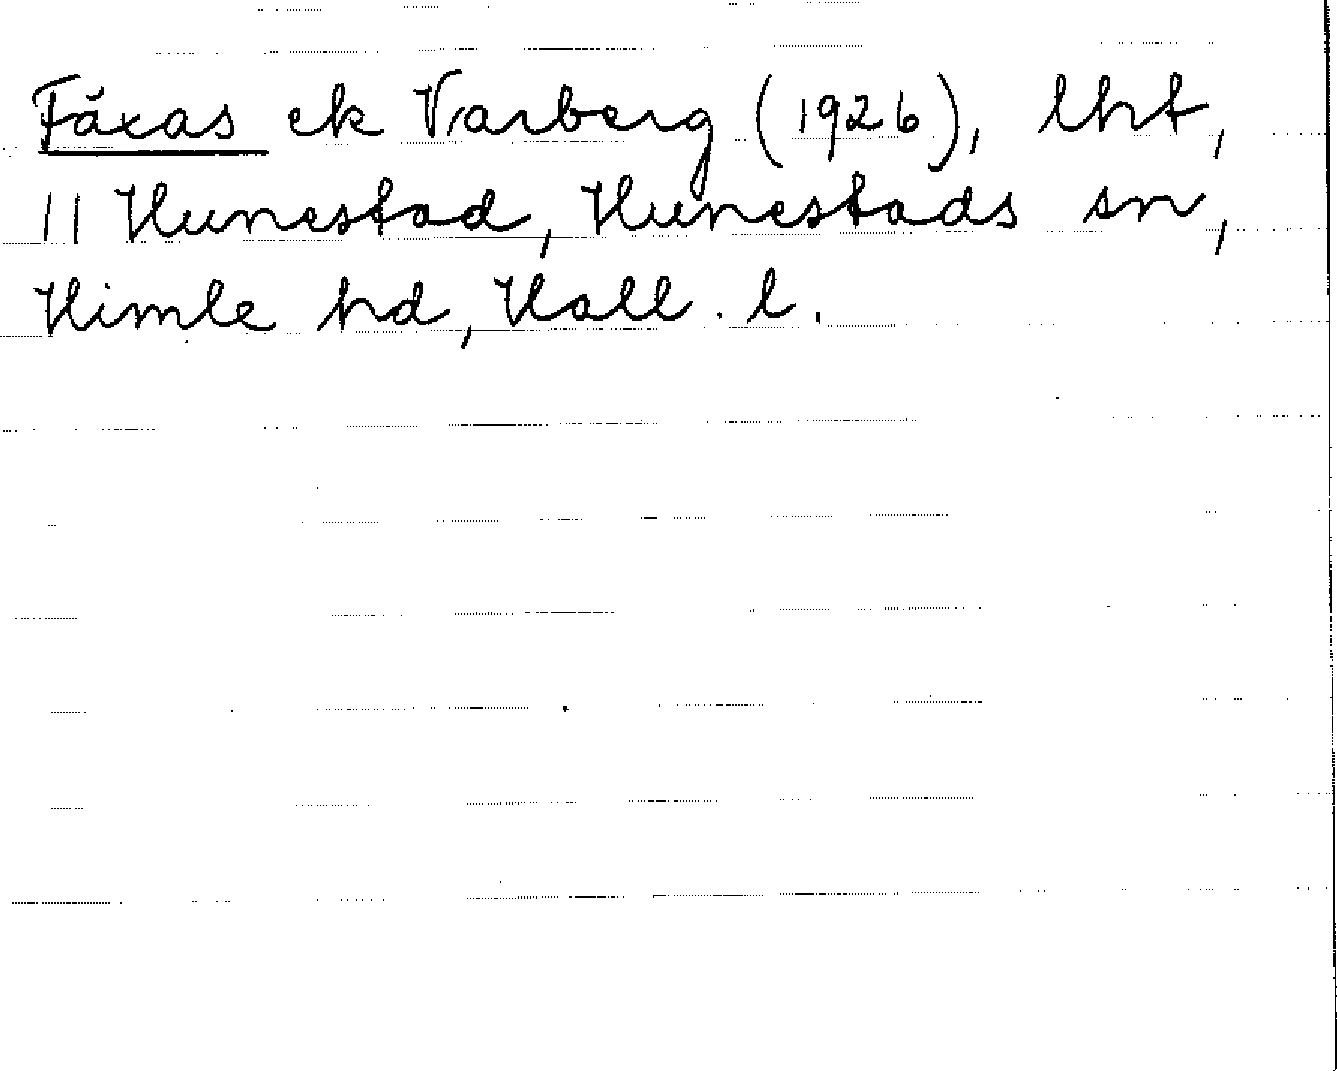 Fäxas ek Varberg (1926), lht,
11 Hunestad, Hunestads sn,
Himle hd, Hall. l.